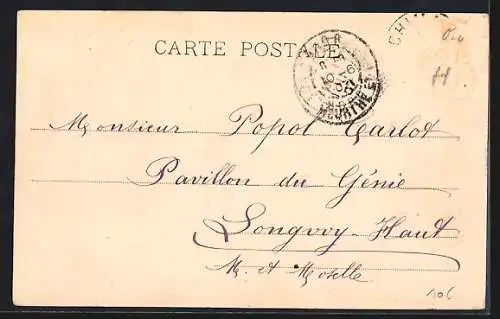 CARTE POSTALE
Monsieur Popol Carlot
Pavillon du Génie
Longwy-Haut
M. et Moselle
106